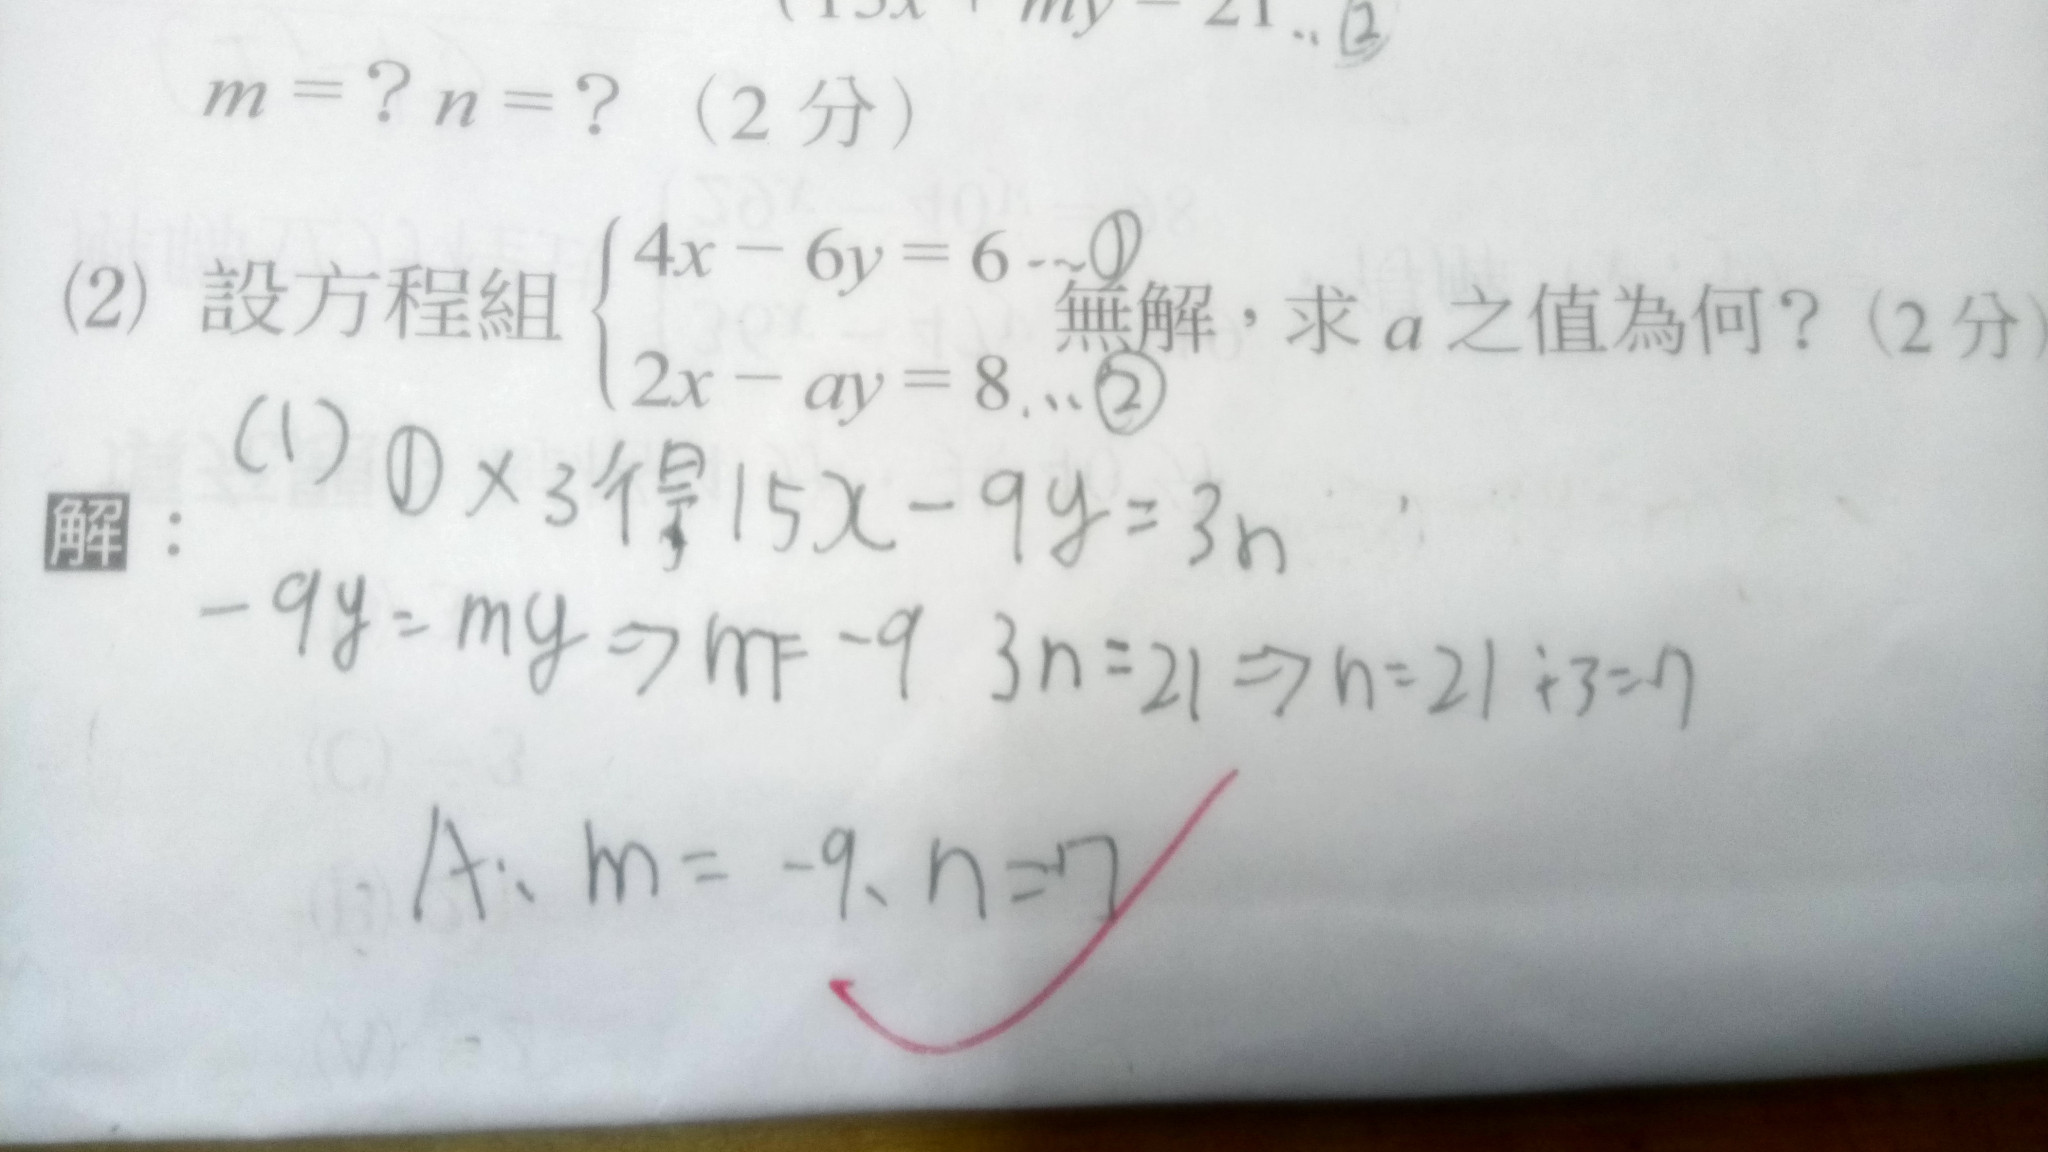 15x + my = 21 ‥②
m = ? n = ? (2 分)
(2) 設方程組 { 4x − 6y = 6 --~①
2x − ay = 8 …② 無解,求 a 之值為何? (2 分)
(1) ① × 3 得 15x − 9y = 3n
解:
−9y = my ⇒ m = −9 3n = 21 ⇒ n = 21 ÷ 3 = 7
A:、m = −9、n = 7